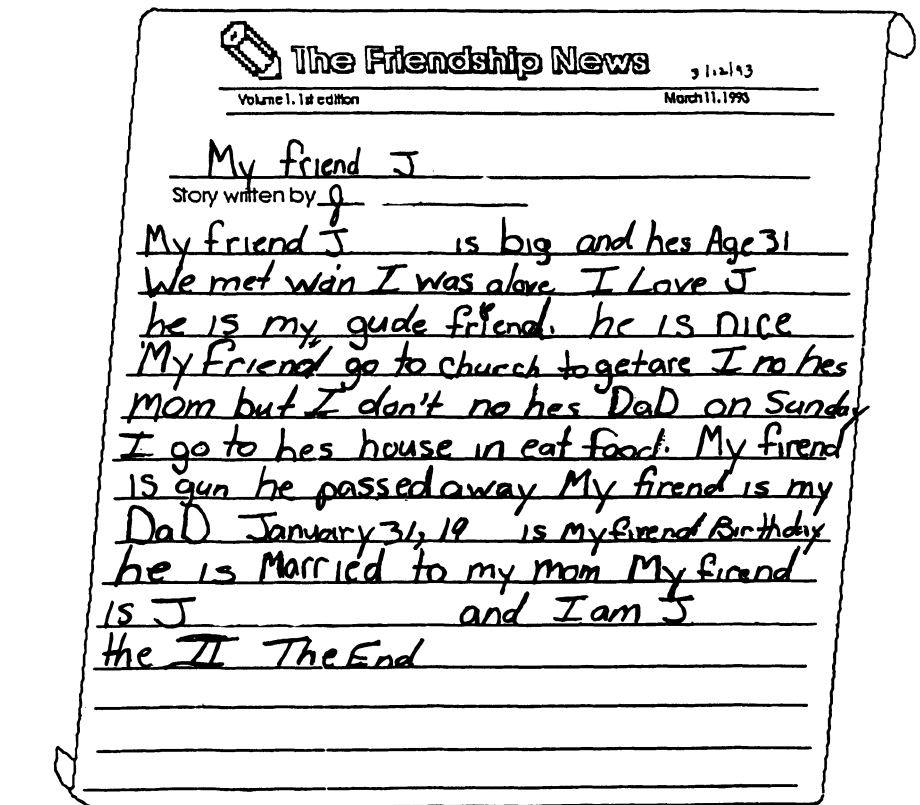 The Friendship News 3/12/93
Volume 1. 1st edition March 11. 1993
My friend J
Story written by J
My friend J is big and hes Age 31
We met wain I was alove I Love J
he is my gude friend. he is nice
My Friend go to church togetare I no hes
mom but I don't no hes DaD on Sunday
I go to hes house in eat food. My firend
is gun he passed away My firend is my
DaD January 31, 19 is my firend Birthday
he is Married to my mom My firend
is J and I am J
the II The End